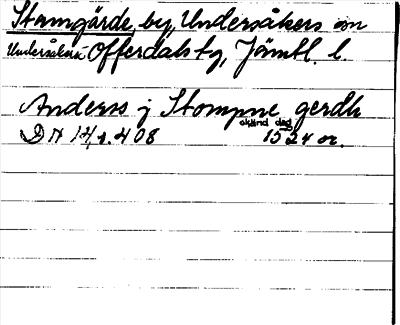 Stamgärde, by, Undersåkers sn
Undersåkers Offerdals tg, Jämtl. l.
Anders j Stompne gerdh
okänd dag
DN 14, s. 408 1524 or.